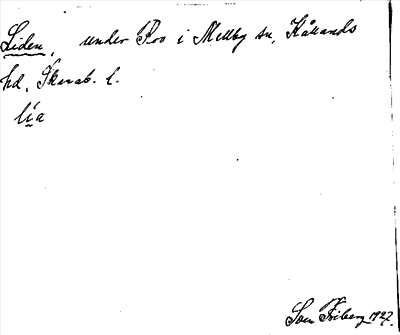 Liden, under Pro i Mellby sn, Kållands
hd, Skarab. l.
lía
Sven Friberg 1927.